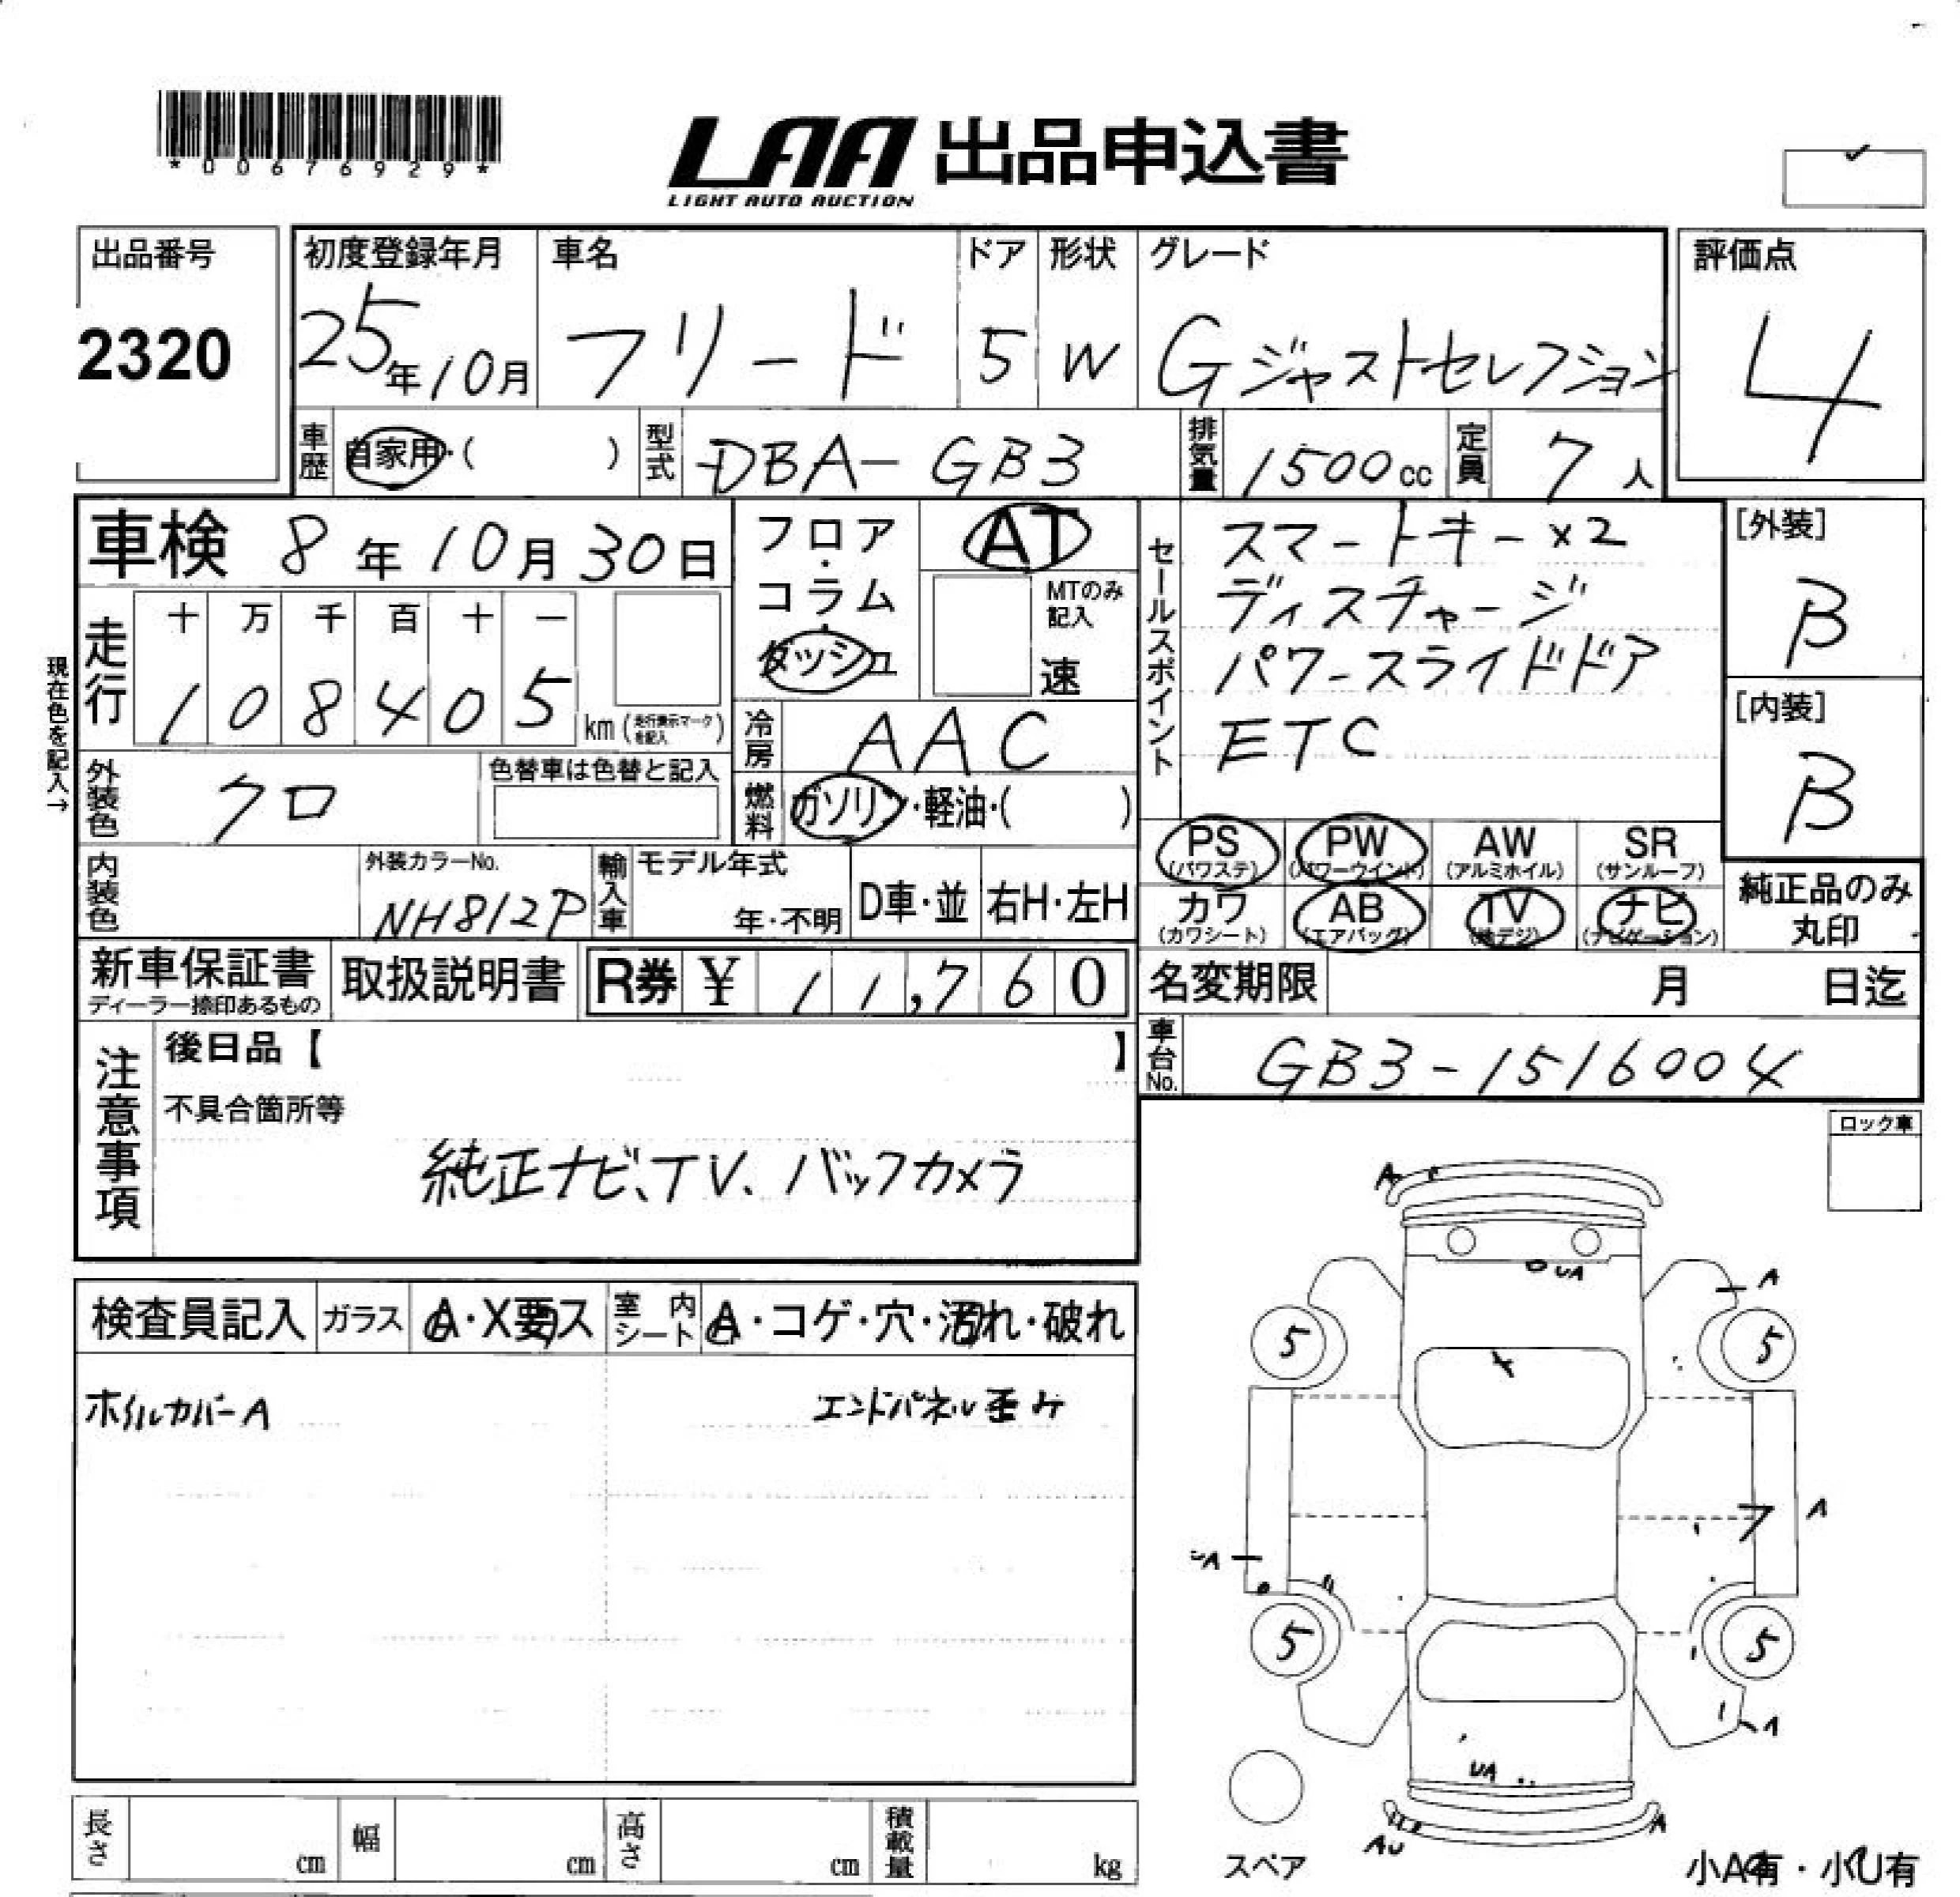 *00676929*
LAA 出品申込書
LIGHT AUTO AUCTION
出品番号
2320
初度登録年月
25年10月
車名
フリード
ドア
5
形状
W
グレード
Gジャストセレクション
評価点
4
車歴
自家用・( )
型式
DBA-GB3
排気量
1500cc
定員
7人
車検 8年10月30日
現在色を記入→
走行
十 万 千 百 十 一
1 0 8 4 0 5 km (走行表示マークを記入)
フロア・コラム・ダッシュ
AT
MTのみ記入
速
冷房
AAC
燃料
ガソリン・軽油・( )
外装色
クロ
色替車は色替と記入
内装色
外装カラーNo.
NH812P
輸入車
モデル年式
年・不明
D車・並
右H・左H
セールスポイント
スマートキー×2
ディスチャージ
パワースライドドア
ETC
[外装]
B
[内装]
B
PS (パワステ)
PW (パワーウインド)
AW (アルミホイル)
SR (サンルーフ)
カワ (カワシート)
AB (エアバッグ)
TV (地デジ)
ナビ (ナビゲーション)
純正品のみ
丸印
新車保証書
ディーラー捺印あるもの
取扱説明書
R券 ¥ 11,760
名変期限 月 日迄
車台No.
GB3-1516004
注意事項
後日品【 】
不具合箇所等
純正ナビ、TV、バックカメラ
ロック車
検査員記入
ガラス
A・X要ス
室内シート
A・コゲ・穴・汚れ・破れ
ホイルカバーA
エンドパネル歪み
A
UA
A
5
5
7
A
UA
5
5
A
UA
AU
A
スペア
小A有・小U有
長さ cm
幅 cm
高さ cm
積載量 kg